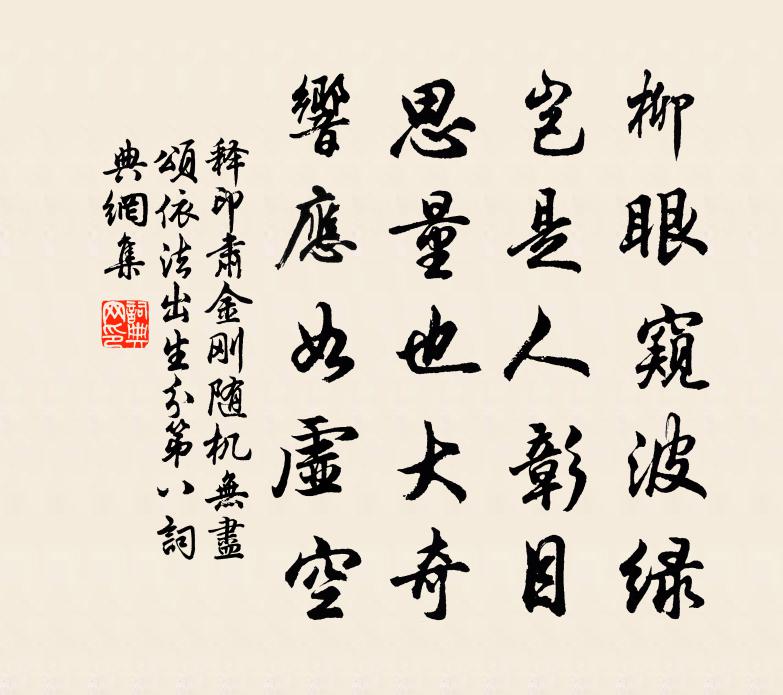 柳眼窺波绿
岂是人彰目
思量也大奇
響應如虛空
释印肅金刚随机無盡
頌依法出生分第八詞
典網集
詞典
网印